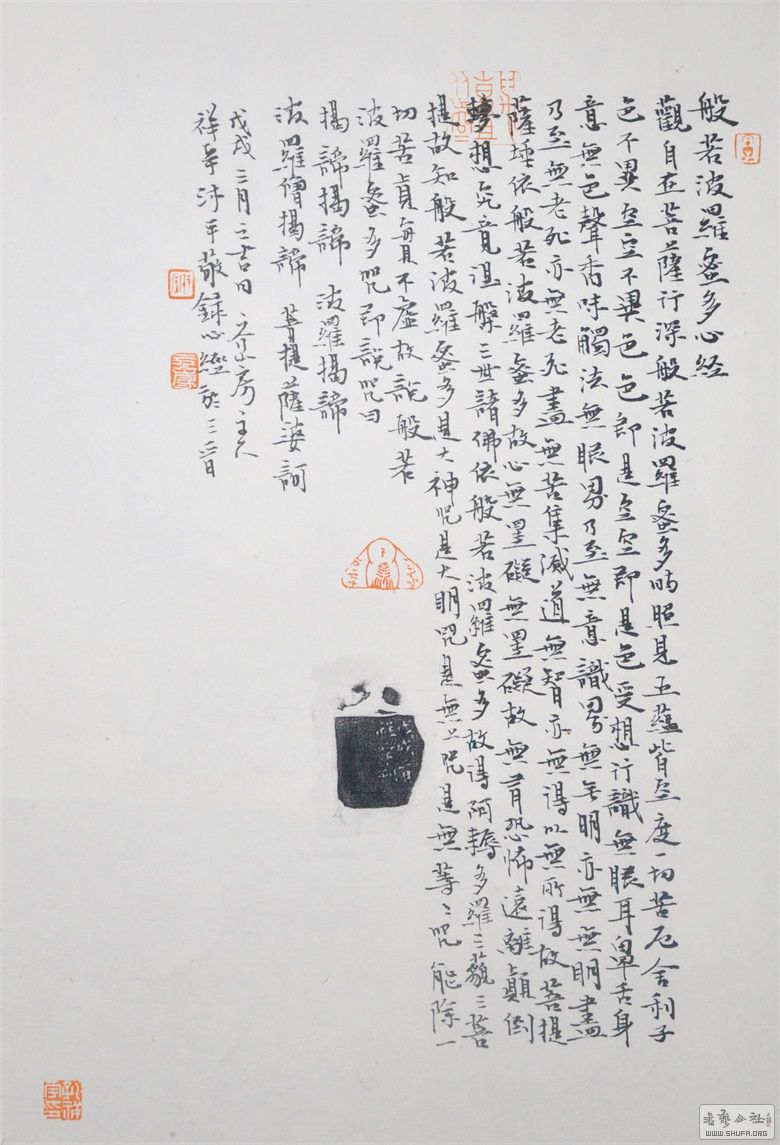 般若波羅蜜多心经
觀自在菩薩行深般若波羅蜜多時照見五蘊皆空度一切苦厄舍利子
色不異空空不異色色即是空空即是色受想行識無眼耳鼻舌身
意無色聲香味觸法無眼界乃至無意識界無無明亦無無明盡
乃至無老死亦無老死盡無苦集滅道無智亦無得以無所得故菩提
薩埵依般若波羅蜜多故心無罣礙無罣礙故無有恐怖遠離顛倒
夢想究竟涅槃三世諸佛依般若波羅蜜多故得阿耨多羅三藐三菩
提故知般若波羅蜜多是大神咒是大明咒是無上咒是無等〻咒能除一
切苦真實不虛故說般若
波羅蜜多咒即說咒曰
揭諦揭諦 波羅揭諦
波羅僧揭諦 菩提薩婆訶
戊戌三月之吉日 房主人
祥 沐手敬録心經於三省
书艺公社
WWW.SHUFA.ORG